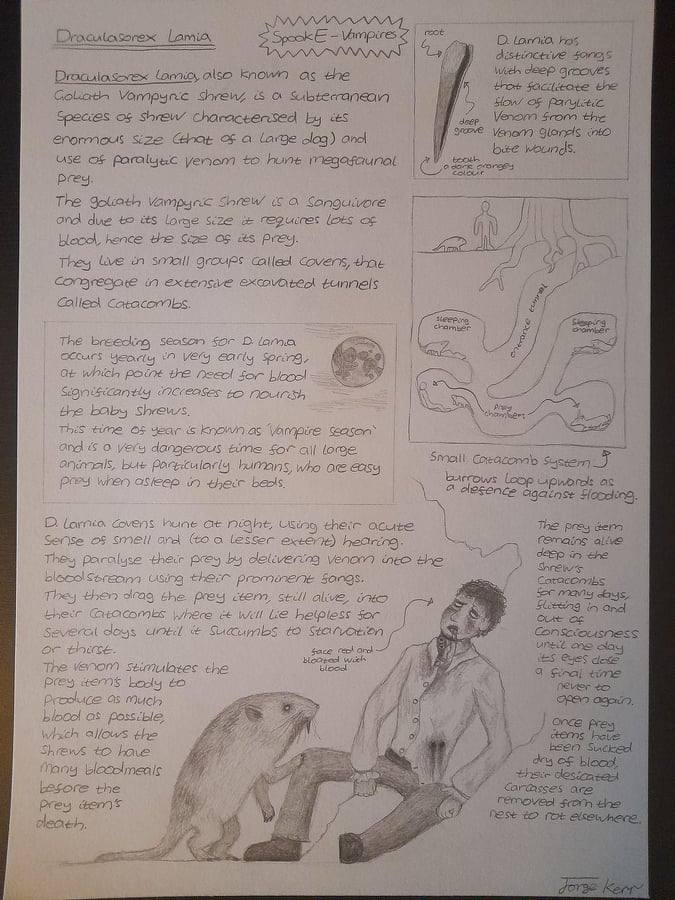 Draculasorex Lamia
SpookE - Vampires
Draculasorex Lamia, also known as the
Goliath Vampyric shrew, is a subterranean
species of shrew characterised by its
enormous size (that of a large dog) and
use of paralytic venom to hunt megafaunal
prey.
The goliath Vampyric Shrew is a Sanguivore
and due to its large size it requires lots of
blood, hence the size of its prey.
They live in small groups called covens, that
congregate in extensive excavated tunnels
called catacombs.
root
deep
groove
tooth
a dark orangey
colour
D. Lamia has
distinctive fangs
with deep grooves
that facilitate the
flow of paralytic
Venom from the
Venom glands into
bite wounds.
entrance tunnel
sleeping
chamber
sleeping
chamber
prey
chambers
Small Catacomb System
burrows loop upwards as
a defence against flooding.
The breeding season for D. Lamia
occurs yearly in very early spring,
at which point the need for blood
significantly increases to nourish
the baby shrews.
This time of year is known as 'Vampire Season'
and is a very dangerous time for all large
animals, but particularly humans, who are easy
prey when asleep in their beds.
D. Lamia covens hunt at night, using their acute
sense of smell and (to a lesser extent) hearing.
They paralyse their prey by delivering venom into the
bloodstream using their prominent fangs.
They then drag the prey item, still alive, into
their catacombs where it will lie helpless for
several days until it succumbs to starvation
or thirst.
The venom stimulates the
prey item's body to
produce as much
blood as possible,
which allows the
shrews to have
many bloodmeals
before the
prey item's
death.
face red and
bloated with
blood
The prey item
remains alive
deep in the
shrew's
Catacombs
for many days,
flitting in and
out of
consciousness
until one day
its eyes close
a final time
never to
open again.
Once prey
items have
been sucked
dry of blood,
their desicated
carcasses are
removed from the
nest to rot elsewhere.
Jorge Kerr